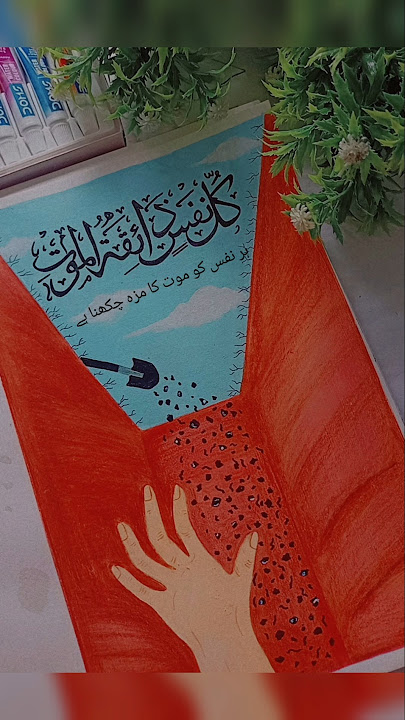 كُلُّ نَفْسٍ ذَائِقَةُ الْمَوْتِ
ہر نفس کو موت کا مزہ چکھنا ہے
DOMS